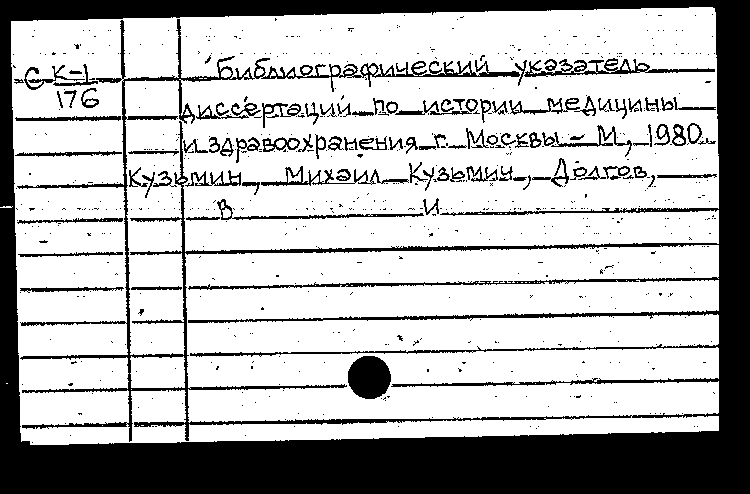 С К-1
176
Библиографический указатель
диссертаций по истории медицины
и здравоохранения г. Москвы - М., 1980.
Кузьмин, Михаил Кузьмич, Долгов,
В И